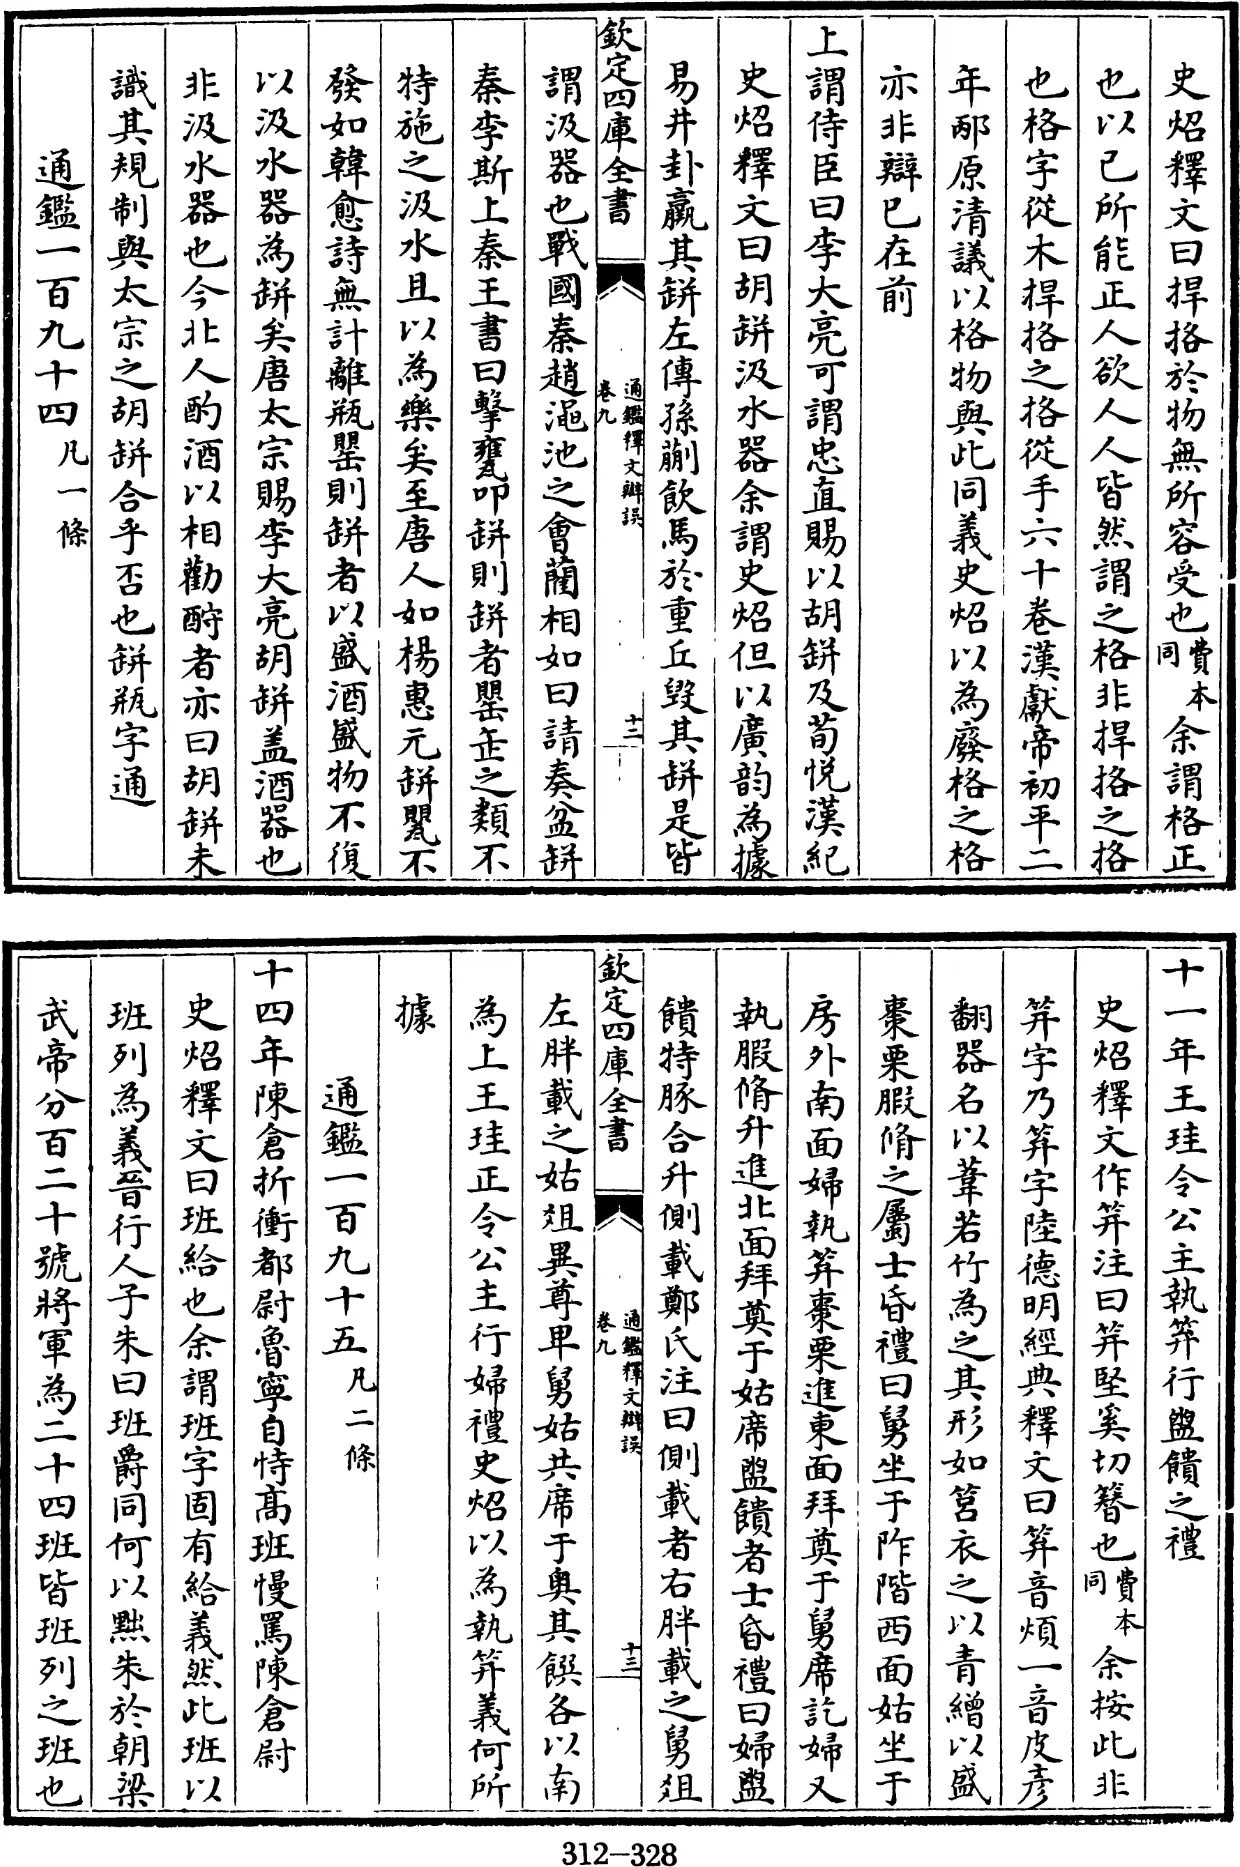 史炤釋文曰捍挌於物無所容受也費本同余謂格正
也以己所能正人欲人人皆然謂之格非捍挌之挌
也格字從木捍挌之挌從手六十卷漢獻帝初平二
年邴原清議以格物與此同義史炤以為廢格之格
亦非辯已在前
上謂侍臣曰李大亮可謂忠直賜以胡缾及荀悅漢紀
史炤釋文曰胡缾汲水器余謂史炤但以廣韵為據
易井卦羸其缾左傳孫蒯飲馬於重丘毀其缾是皆
欽定四庫全書
通鑑釋文辯誤
卷九
十二
謂汲器也戰國秦趙澠池之會藺相如曰請奏盆缾
秦李斯上秦王書曰擊甕叩缾則缾者罌缶之類不
特施之汲水且以為樂矣至唐人如楊惠元缾罌不
發如韓愈詩無計離瓶罌則缾者以盛酒盛物不復
以汲水器為缾矣唐太宗賜李大亮胡缾盖酒器也
非汲水器也今北人酌酒以相勸酧者亦曰胡缾未
識其規制與太宗之胡缾合乎否也缾瓶字通
通鑑一百九十四凡一條
十一年王珪令公主執笲行盥饋之禮
史炤釋文作筓注曰筓堅奚切簪也費本同余按此非
筓字乃笲字陸德明經典釋文曰笲音煩一音皮彥
翻器名以葦若竹為之其形如筥衣之以青繒以盛
棗栗腶脩之屬士昏禮曰舅坐于阼階西面姑坐于
房外南面婦執笲棗栗進東面拜奠于舅席訖婦又
執腶脩升進北面拜奠于姑席盥饋者士昏禮曰婦盥
饋特豚合升側載鄭氏注曰側載者右胖載之舅俎
欽定四庫全書
通鑑釋文辯誤
卷九
十三
左胖載之姑俎異尊卑舅姑共席于奧其饌各以南
為上王珪正令公主行婦禮史炤以為執筓義何所
據
通鑑一百九十五凡二條
十四年陳倉折衝都尉魯寧自恃高班慢罵陳倉尉
史炤釋文曰班給也余謂班字固有給義然此班以
班列為義晉行人子朱曰班爵同何以黜朱於朝梁
武帝分百二十號將軍為二十四班皆班列之班也
312-328